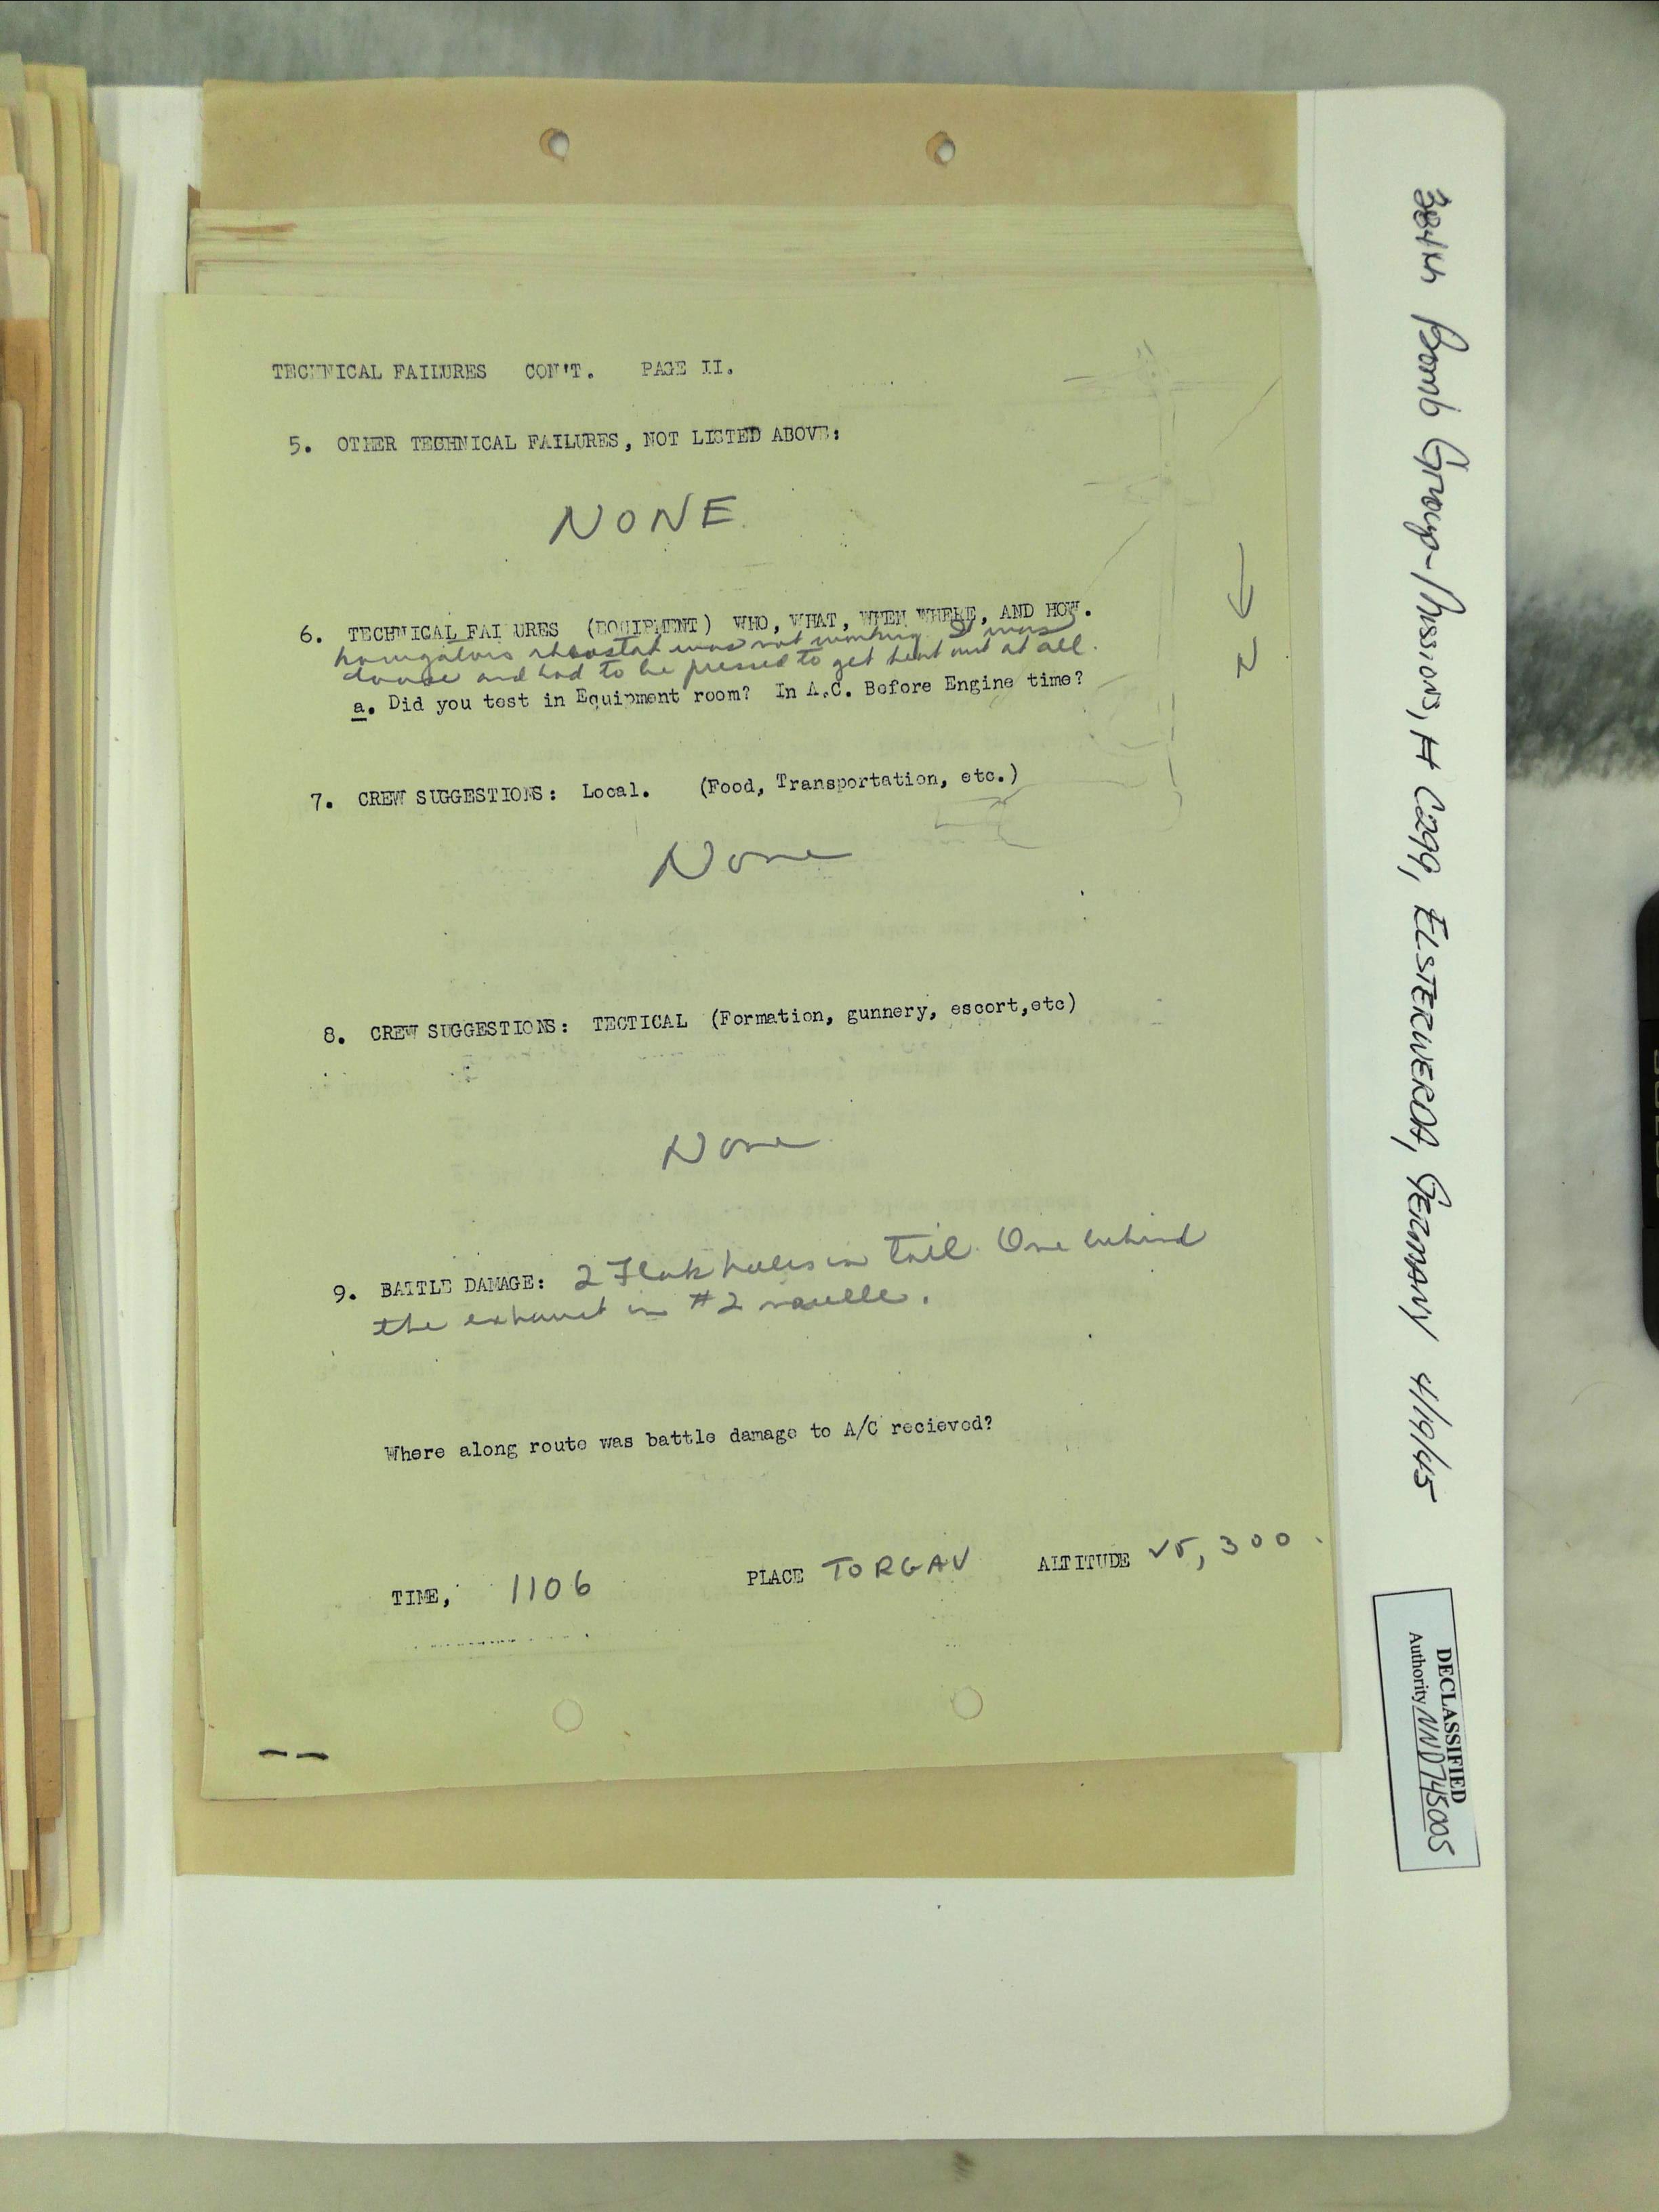 TECHNICAL FAILURES CON'T. PAGE II.
5. OTHER TECHNICAL FAILURES, NOT LISTED ABOVE:
NONE
6. TECHNICAL FAI URES (EQUIPMENT) WHO, WHAT, WHEN WHERE, AND HOW.
rheostat was not working. It was
and had to be pressed to get heat out at all.
a. Did you test in Equipment room? In A.C. Before Engine time?
7. CREW SUGGESTIONS: Local. (Food, Transportation, etc.)
None
8. CREW SUGGESTIONS: TECTICAL (Formation, gunnery, escort,etc)
None
9. BATTLE DAMAGE: 2 Flak holes in Tail. One behind
the exhaust in #2 nacelle.
Where along route was battle damage to A/C recieved?
TIME, 1106 PLACE TORGAU ALTITUDE 25,300
N
384th Bomb Group-Missions, # C299, ELSTERWERDA, GERMANY 4/19/45
DECLASSIFIED
Authority NND745005